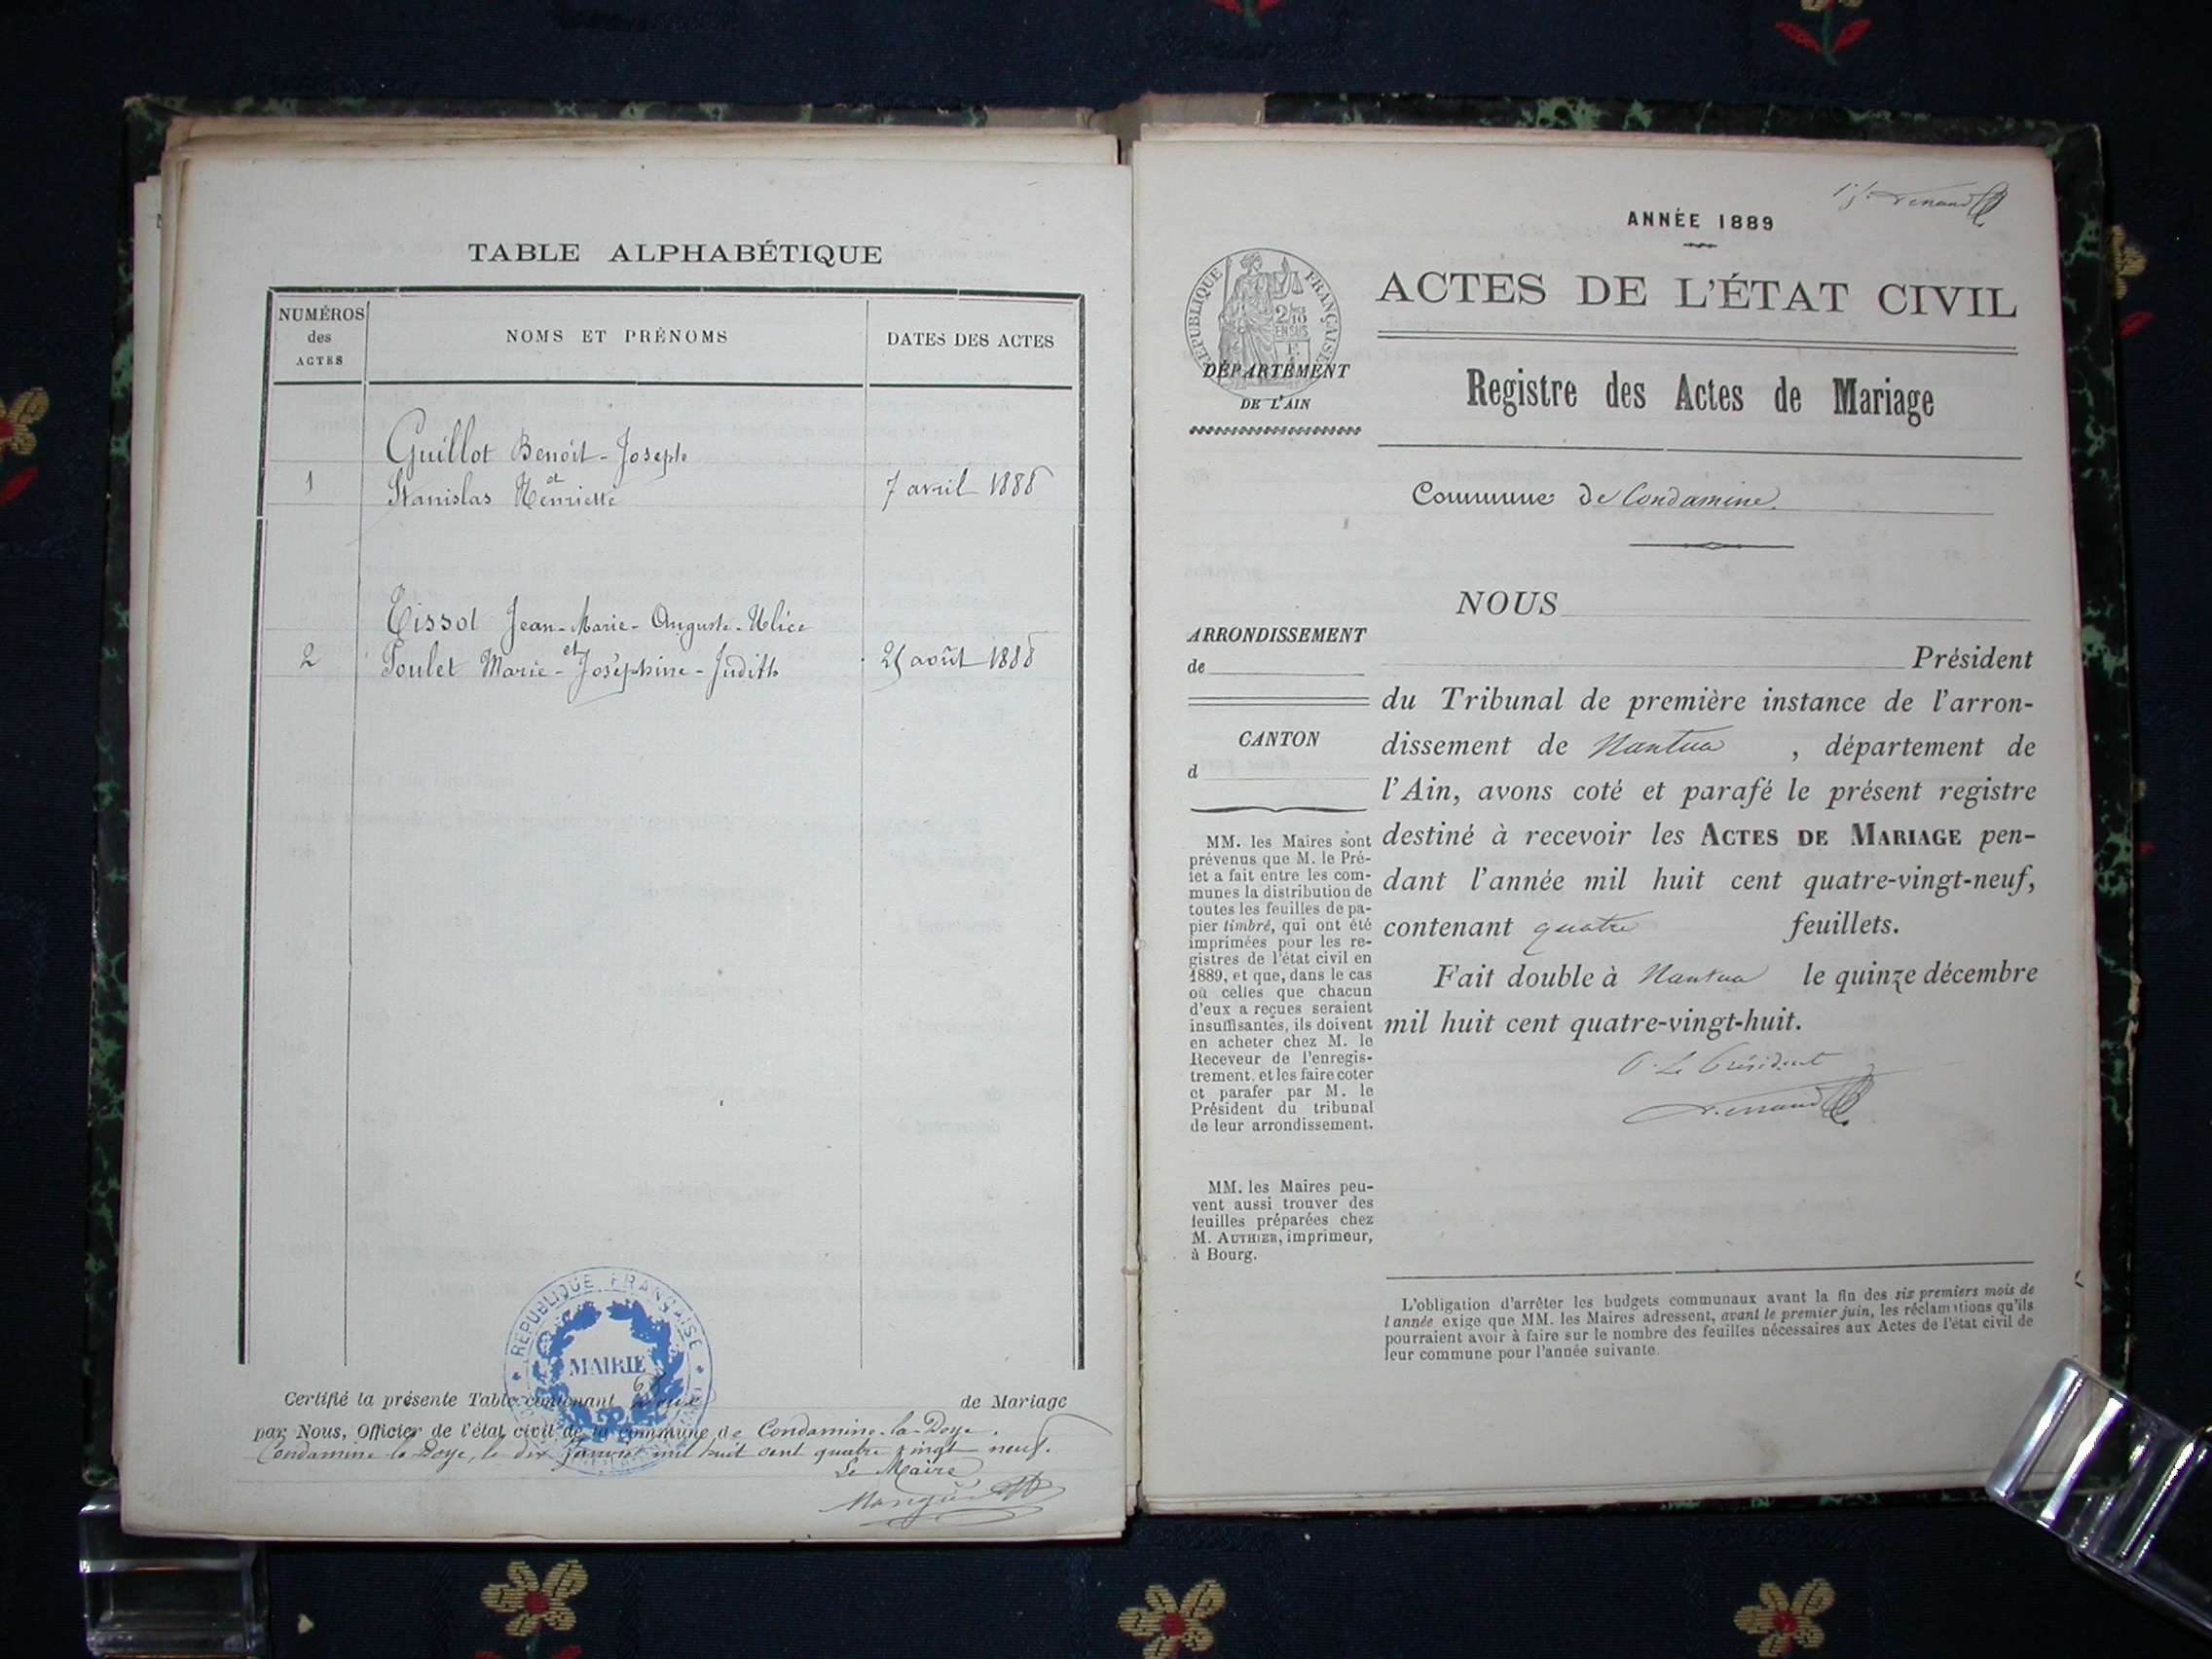 TABLE ALPHABÉTIQUE
NUMÉROS
des
ACTES
NOMS ET PRÉNOMS
DATES DES ACTES
Guillot Benoit-Joseph
et
1 Stanislas Henriette 7 avril 1888
Tissot Jean-Marie-Auguste-Ulice
et
2 Poulet Marie-Joséphine-Judith 25 août 1888
RÉPUBLIQUE FRANÇAISE
MAIRIE
Certifié la présente Table contenant deux de Mariage
par Nous, Officier de l'état civil de la commune de Condamine-la-Doye.
Condamine-la-Doye, le dix janvier mil huit cent quatre vingt neuf.
Le Maire
ANNÉE 1889
ACTES DE L'ÉTAT CIVIL
RÉPUBLIQUE FRANÇAISE
DÉPARTEMENT
DE L'AIN
Registre des Actes de Mariage
Commune de Condamine.
NOUS
ARRONDISSEMENT
de
Président
du Tribunal de première instance de l'arron-
dissement de Nantua, département de
l'Ain, avons coté et parafé le présent registre
destiné à recevoir les ACTES DE MARIAGE pen-
dant l'année mil huit cent quatre-vingt-neuf,
contenant quatre feuillets.
Fait double à Nantua le quinze décembre
mil huit cent quatre-vingt-huit.
P. Le Président
CANTON
d
MM. les Maires sont
prévenus que M. le Pré-
fet a fait entre les com-
munes la distribution de
toutes les feuilles de pa-
pier timbré, qui ont été
imprimées pour les re-
gistres de l'état civil en
1889, et que, dans le cas
où celles que chacun
d'eux a reçues seraient
insuffisantes, ils doivent
en acheter chez M. le
Receveur de l'enregis-
trement, et les faire coter
et parafer par M. le
Président du tribunal
de leur arrondissement.
MM. les Maires peu-
vent aussi trouver des
feuilles préparées chez
M. AUTHIER, imprimeur,
à Bourg.
L'obligation d'arrêter les budgets communaux avant la fin des six premiers mois de
l'année exige que MM. les Maires adressent, avant le premier juin, les réclamations qu'ils
pourraient avoir à faire sur le nombre des feuilles nécessaires aux Actes de l'état civil de
leur commune pour l'année suivante.